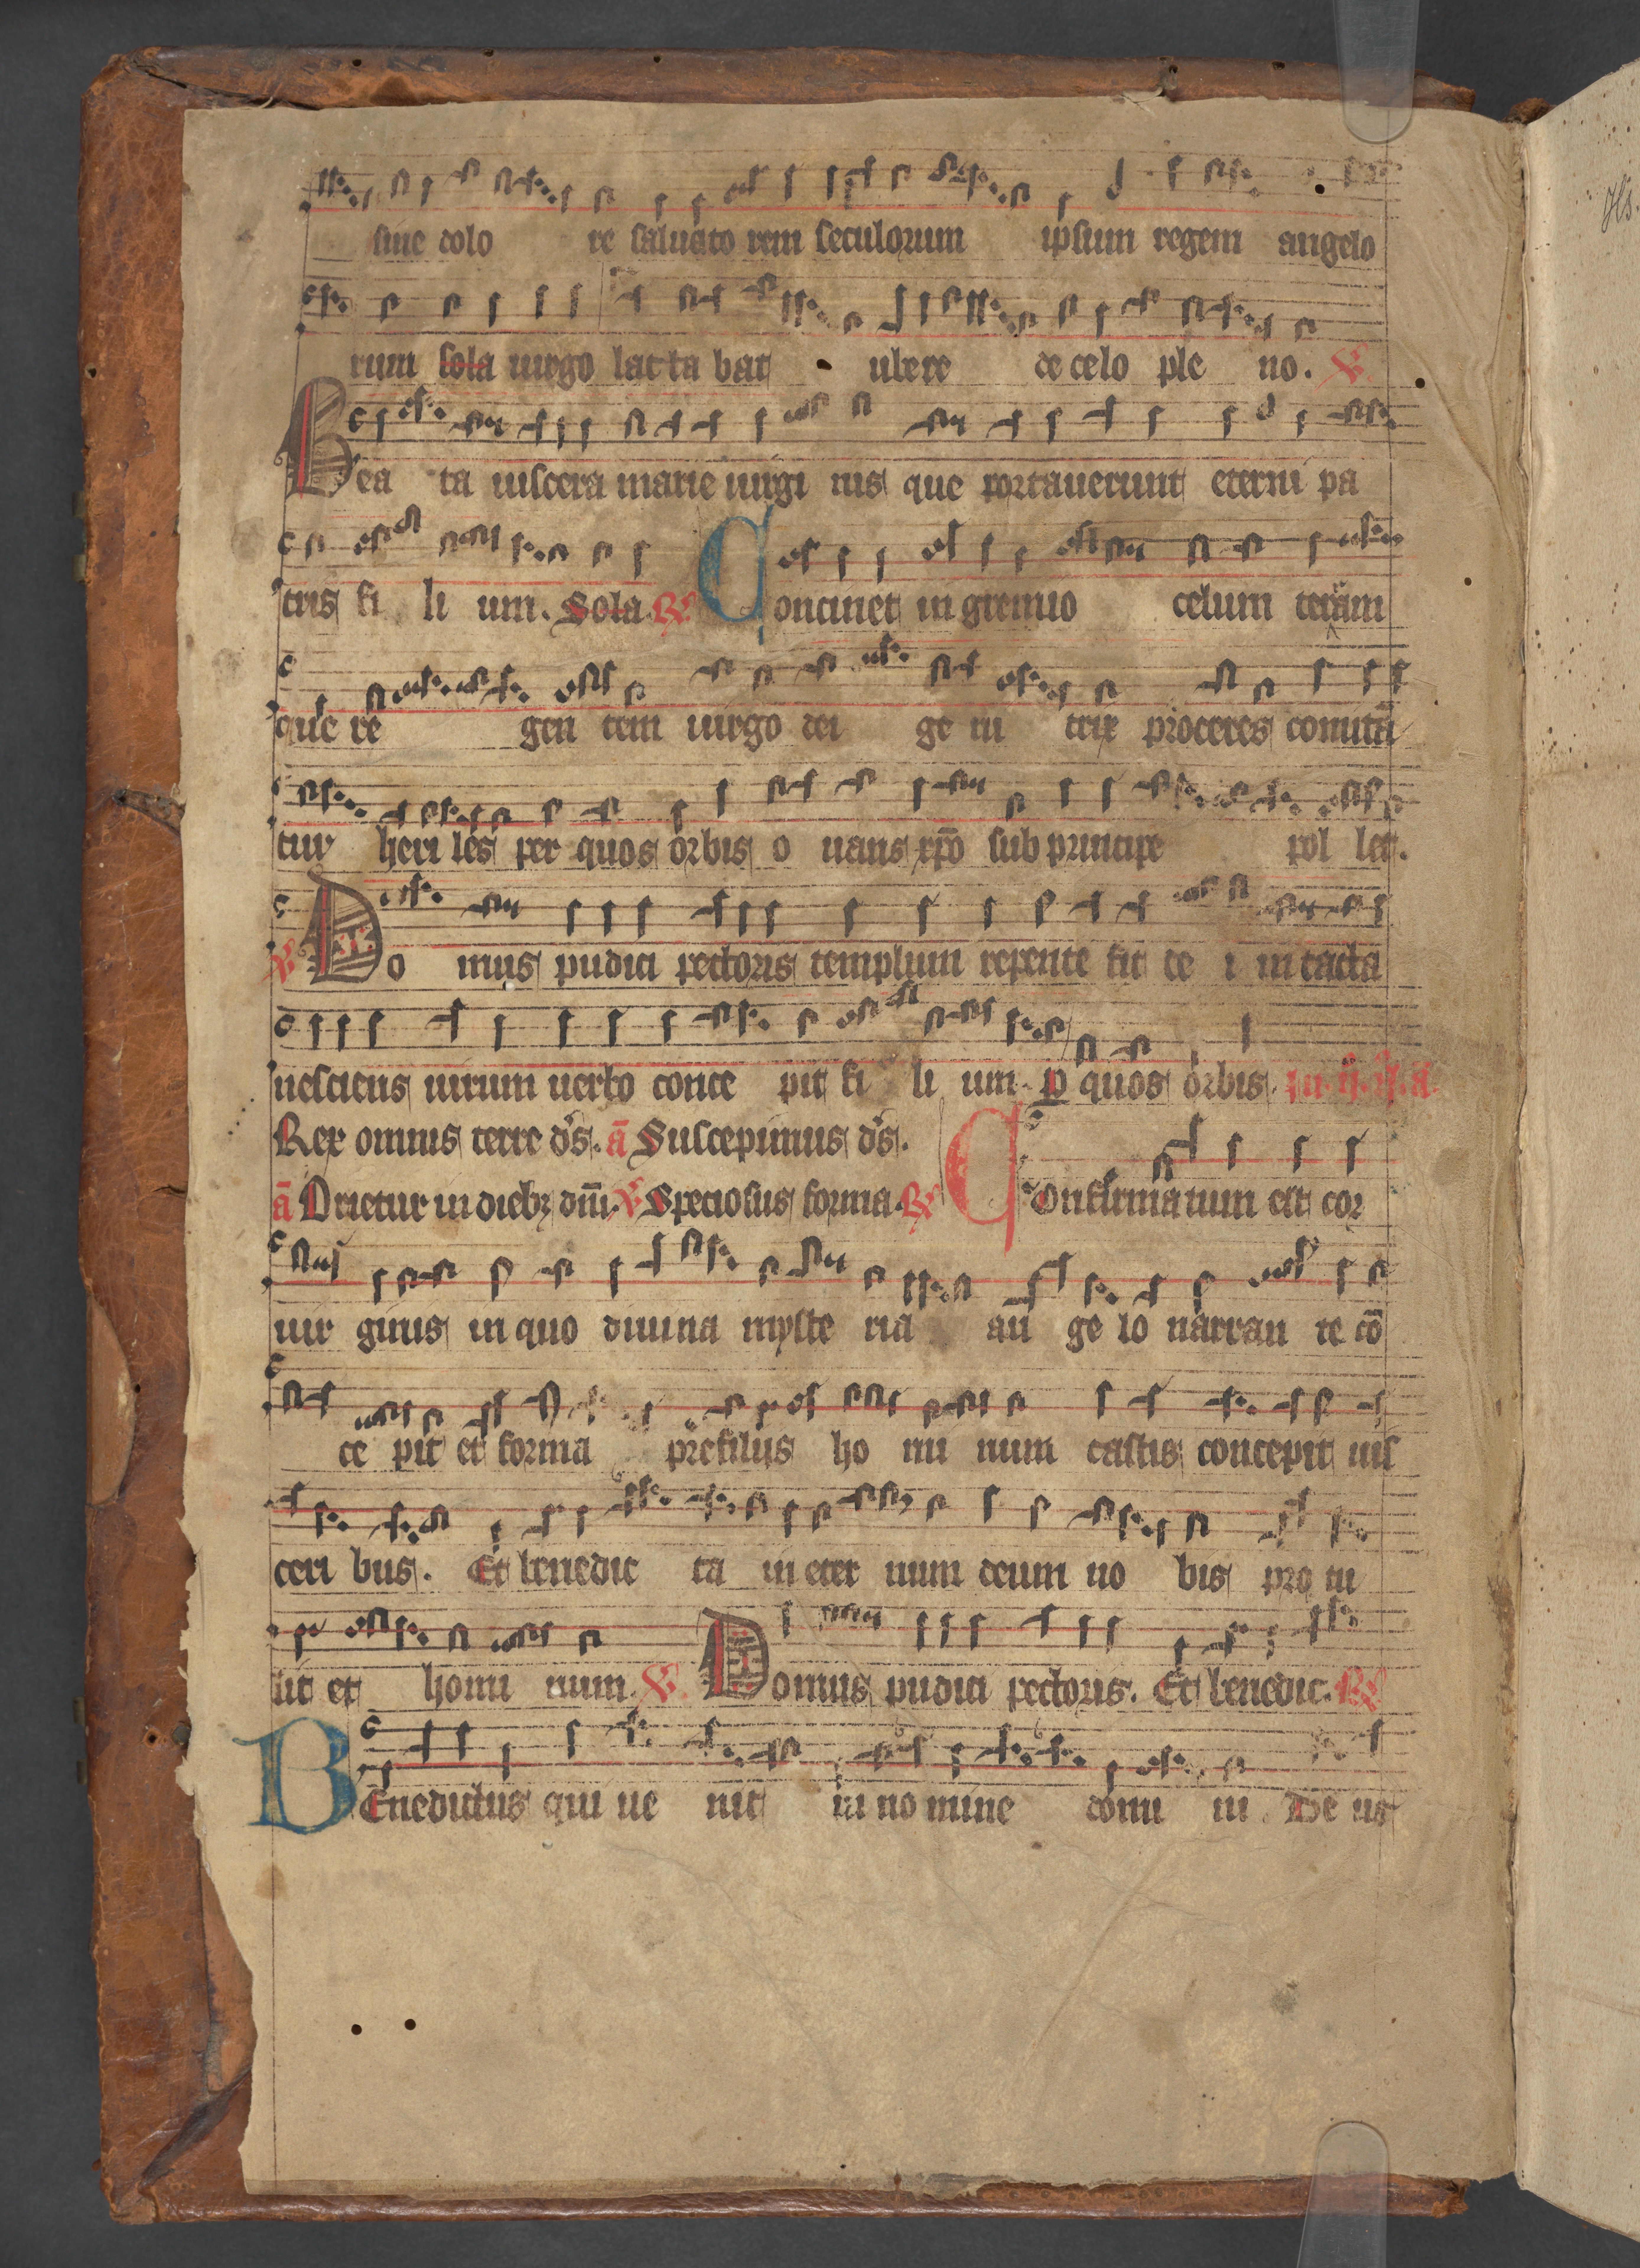 sine dolo re saluato rem seculorum ipsum regem angelo
rum sola uirgo lacta bat ubere de celo ple no. ℣
Bea ta uiscera marie uirgi nis que portauerunt eterni pa
tris fi li um. Sola. ℟ Continet in gremio celum terram
que re gen tem uirgo dei ge ni trix proceres comitā
tur heri les per quos orbis o uans xp̄o sub principe pol let.
℣ Do mus pudici pectoris templum repente fit de i intacta
nesciens uirum uerbo conce pit fi li um. ꝑ quos orbis.
Rex omnis terre d̄s. ā Suscepimus d̄s.
ā Orietur in diebꝫ dn̄i. ℣ Speciosus forma. ℟ Confirmatum est cor
uir ginis in quo diuina myste ria an ge lo narran te cō
ce pit et forma pre filiis ho mi num castis concepit uis
ceri bus. Et benedic ta in eter num deum no bis pro tu
lit et homi num. ℣ Domus pudici pectoris. Et benedic. ℟
Benedictus qui ue nit in no mine domi ni. De us
Hs.